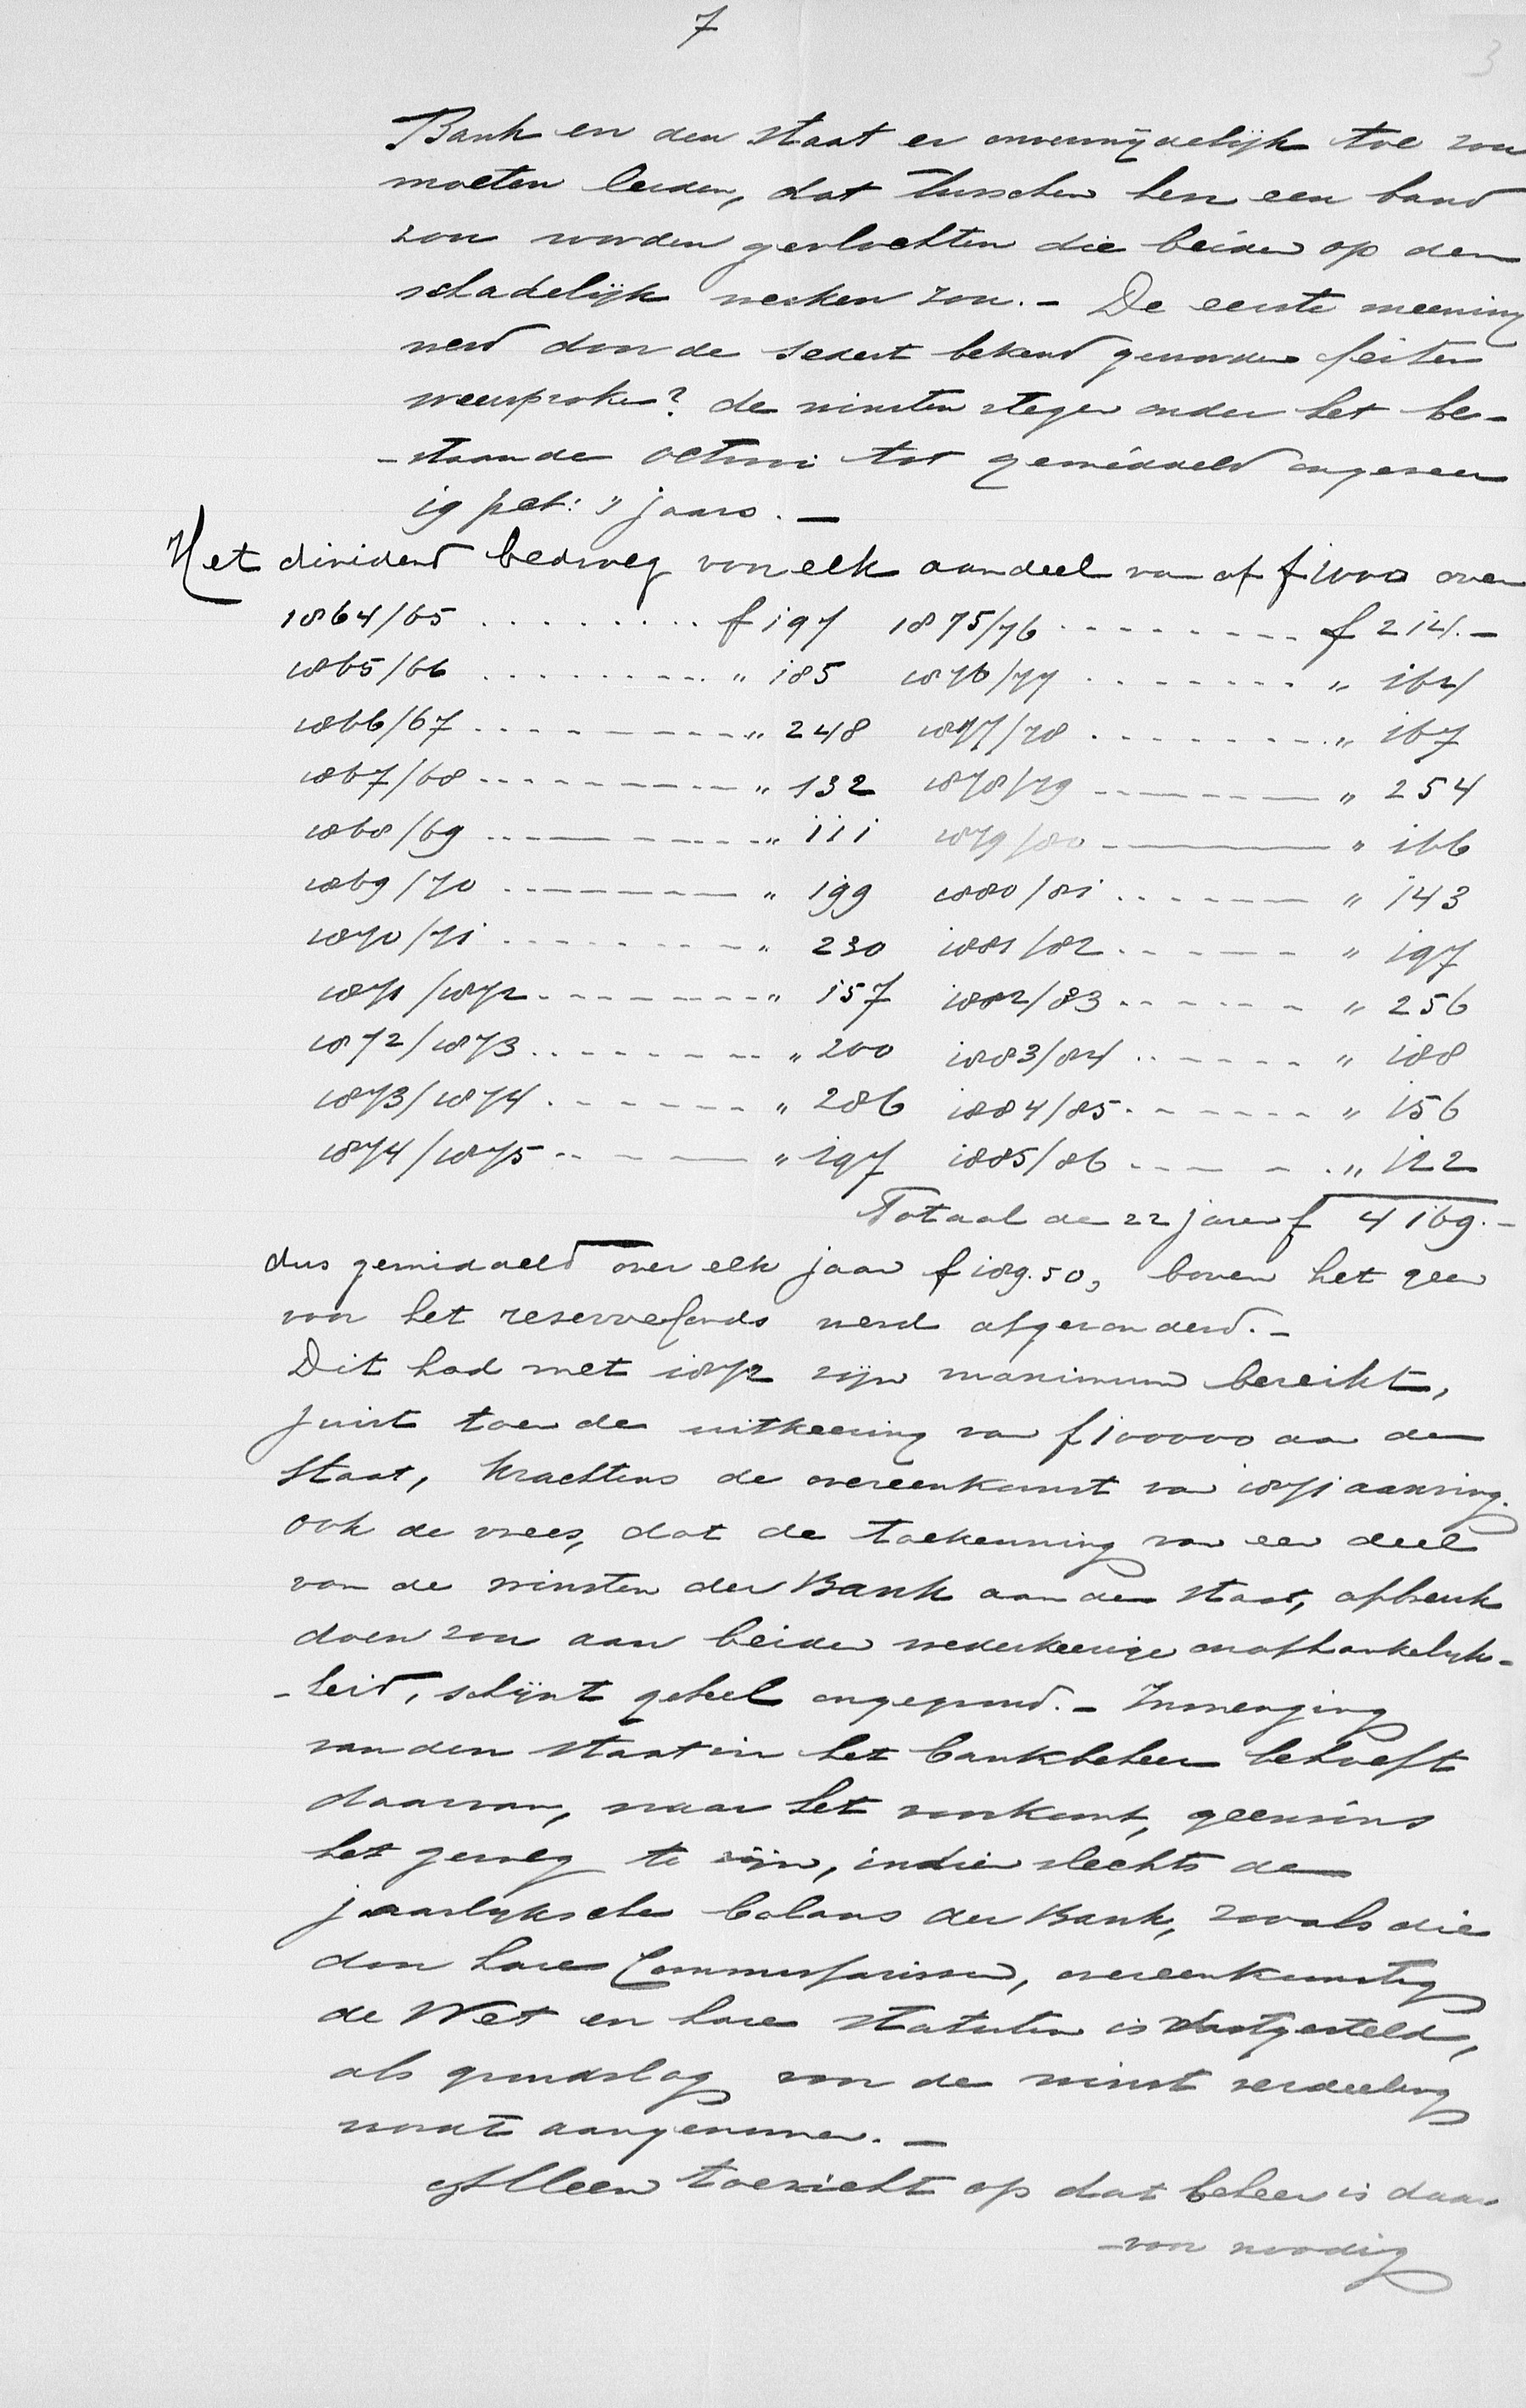 7
3
Bank en den Staat er onvermijdelijk toe zou
moeten leiden, dat tusschen hen een band
zou worden gevlochten die beiden op den
schadelijk werken zou. - De eerste meening
werd door de sedert bekend geworden feiten
weersproken? de winsten stegen onder het be-
-staande octrooi tot gemiddeld ongeveer
19 pct: 's jaars. -
Het dividend bedroeg voor elk aandeel van af f 1000 over
1864/65 ......... f 197 1875/76 ......... f 214.-
1865/66 ......... " 185 1876/77 ......... " 164
1866/67 ......... " 248 1877/78 ......... " 167
1867/68 ......... " 132 1878/79 ......... " 254
1868/69 ......... " 111 1879/80 ......... " 166
1869/70 ......... " 199 1880/81 ......... " 143
1870/71 ......... " 230 1881/82 ......... " 197
1871/1872 ......... " 157 1882/83 ......... " 256
1872/1873 ......... " 200 1883/84 ......... " 188
1873/1874 ......... " 286 1884/85 ......... " 156
1874/1875 ......... " 197 1885/86 ......... " 122
Totaal de 22 jaren f 4169.-
dus gemiddeld over elk jaar f 189.50, boven het geen
voor het reservefonds werd afgezonderd. -
Dit had met 1872 zijn maximum bereikt,
juist toen de uitkeering van f 100000 aan den
Staat, krachtens de overeenkomst van 1871 aanving.
ook de vrees, dat de toekenning van een deel
van de winsten der Bank aan den Staat, afbreuk
doen zou aan beider wederkeerige onafhankelijk-
-heid, schijnt geheel ongegrond. - Inmenging
van den Staat in het bankbeheer behoeft
daarvan, naar het voorkomt, geenszins
het gevolg te zijn, indien slechts de
jaarlijksche balans der Bank, zooals die
door hare Commissarissen, overeenkomstig
de Wet en hare statuten is vastgesteld,
als grondslag van de winst verdeeling
wordt aangenomen. -
Alleen toezicht op dat beheer is daar
-voor noodig